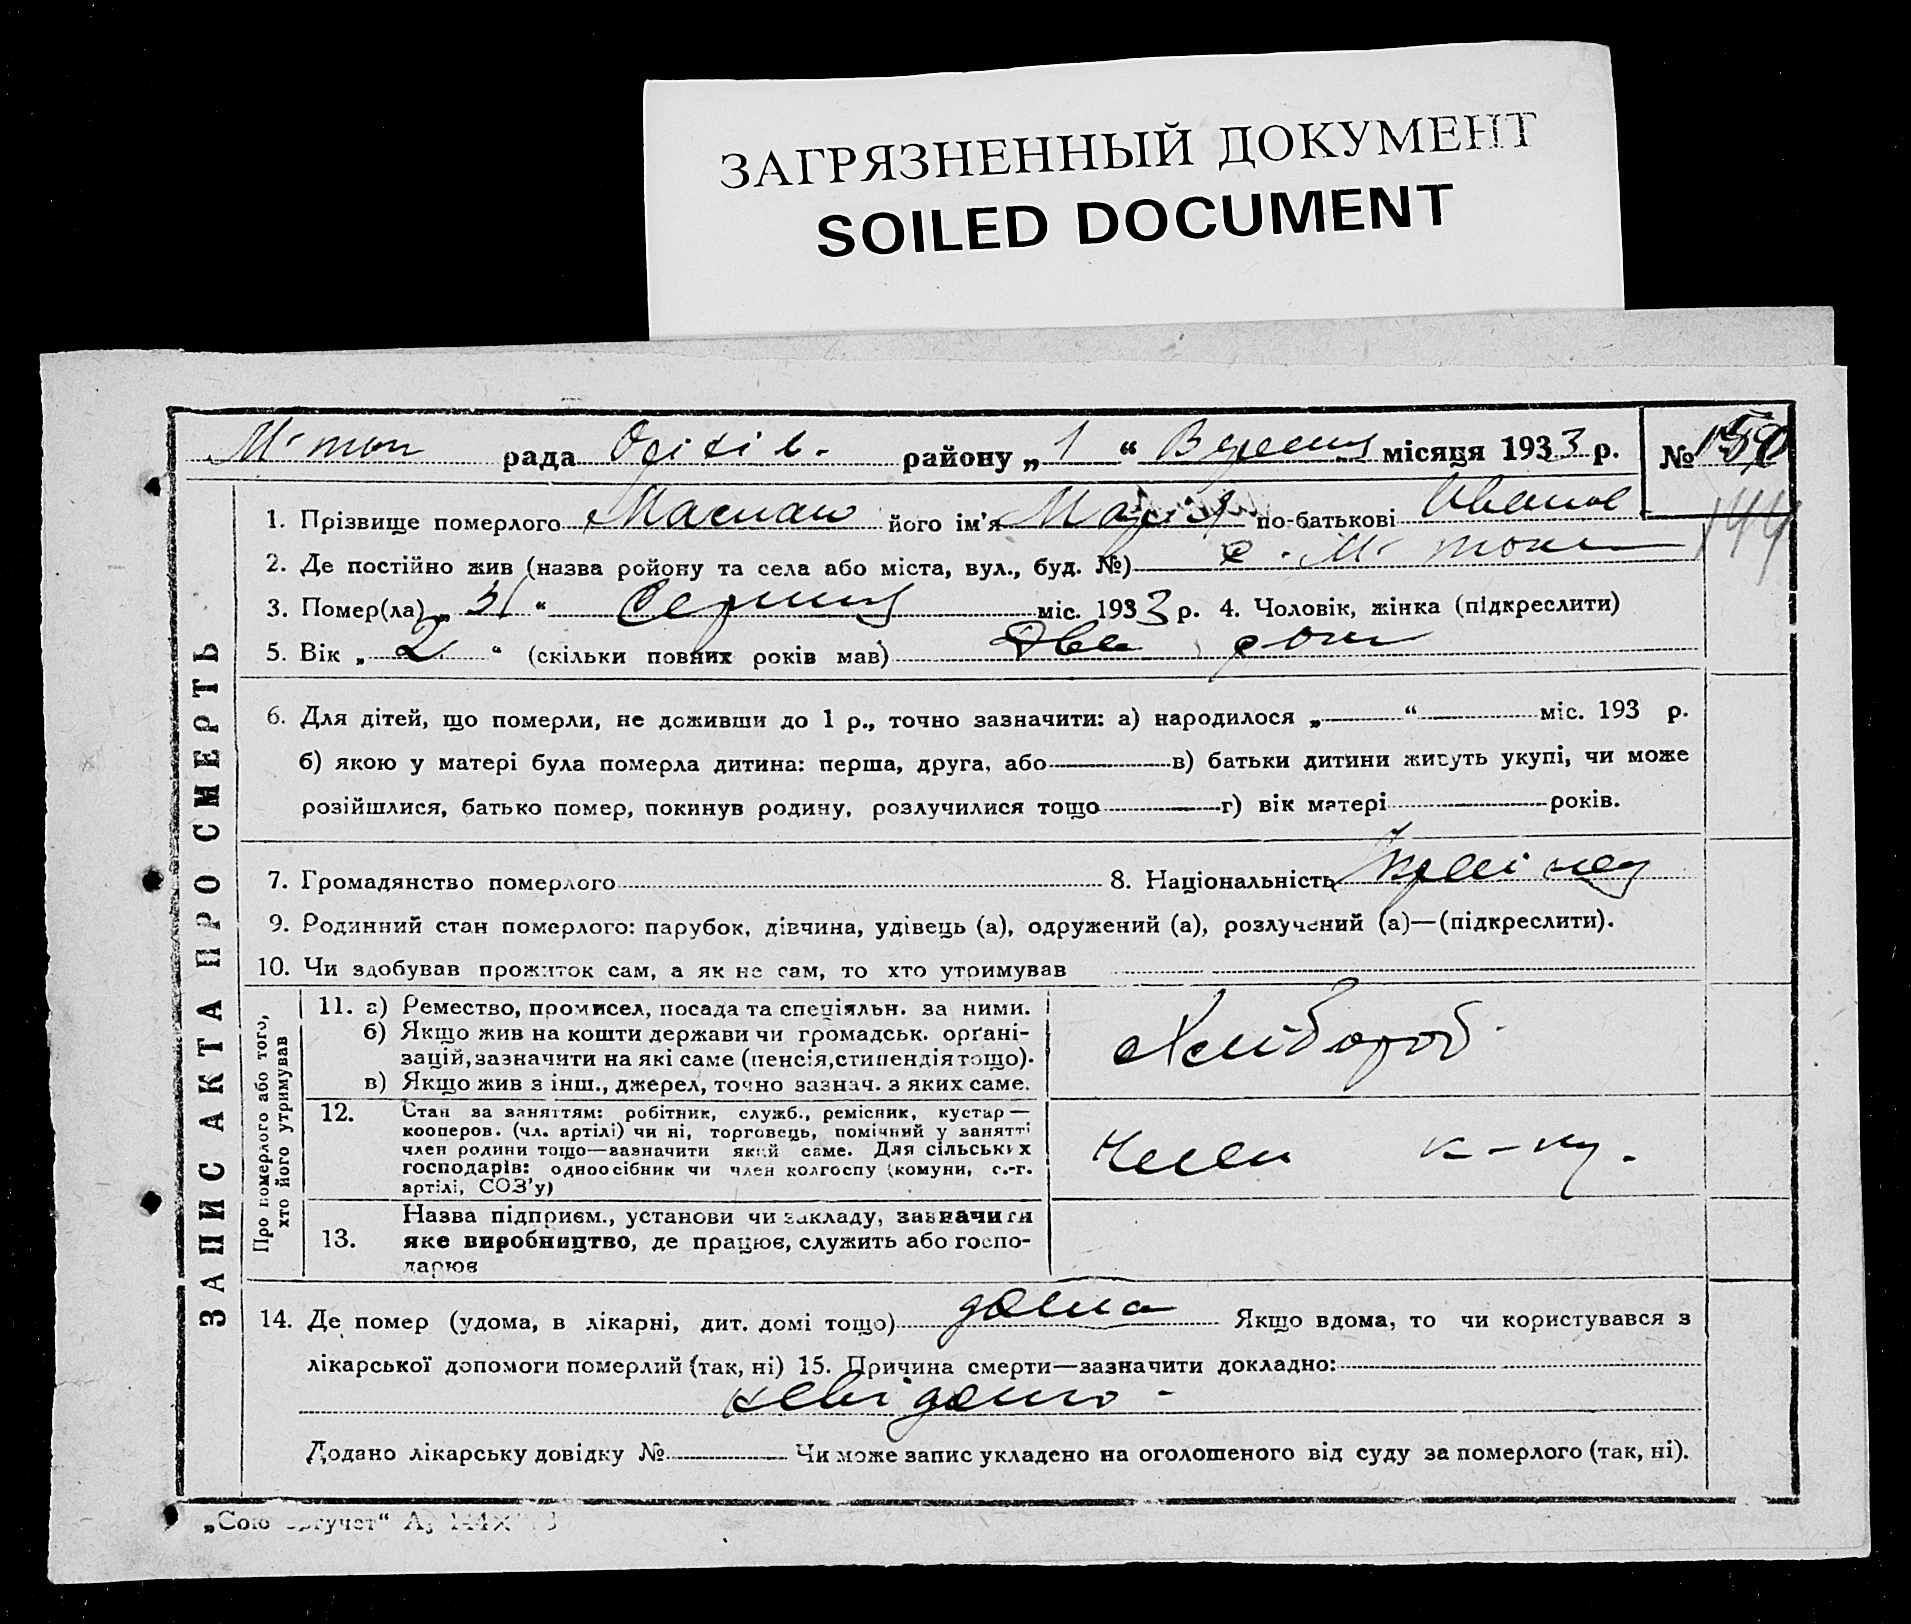 ЗАГРЯЗНЕННЫЙ ДОКУМЕНТ
SOILED DOCUMENT
М-топ рада район у „ 1 “ Вересня місяця 1933 р. №
144
ЗАПИС АКТА ПРО СМЕРТЬ
1. Прізвище померлого його ім'я Марія по-батькові Иванов
2. Де постійно жив (назва району та села або міста, вул., буд. №) с. М-
3. Помер(ла) „ 31 “ Серпня міс. 1933 р. 4. Чоловік, жінка (підкреслити)
5. Вік „ 2 “ (скільки повних років мав) Два роки
6. Для дітей, що померли, не доживши до 1 р., точно зазначити: а) народилося „ “ міс. 193 р.
б) якою у матері була померла дитина: перша, друга, або в) батьки дитини живуть укупі, чи може
розійшлися, батько помер, покинув родину, розлучилися тощо г) вік матері років.
7. Громадянство померлого 8. Національність Українец
9. Родинний стан померлого: парубок, дівчина, удівець (а), одружений (а), розлучений (а)—(підкреслити).
10. Чи здобував прожиток сам, а як не сам, то хто утримував
Про померлого або того, хто його утримував
11. а) Ремество, промисел, посада та спеціяльн. за ними.
б) Якщо жив на кошти держави чи громадськ. орґані-
зацій, зазначити на які саме (пенсія, стипендія тощо).
в) Якщо жив з інш., джерел, точно зазнач. з яких саме.
Хлібороб
12. Стан за заняттям: робітник, служб., ремісник, кустар—
кооперов. (чл. артілі) чи ні, торговець, помічний у занятті
член родини тощо—зазначити який саме. Для сільських
господарів: одноосібник чи член колгоспу (комуни, с.-г.
артілі, СОЗ'у)
Член к-пу.
13. Назва підприєм., установи чи закладу, зазначити
яке виробництво, де працює, служить або госпо-
дарює
14. Де помер (удома, в лікарні, дит. домі тощо) дома Якщо вдома, то чи користувався з
лікарської допомоги померлий (так, ні) 15. Причина смерти—зазначити докладно:
невідомо -
Додано лікарську довідку № Чи може запис укладено на оголошеного від суду за померлого (так, ні).